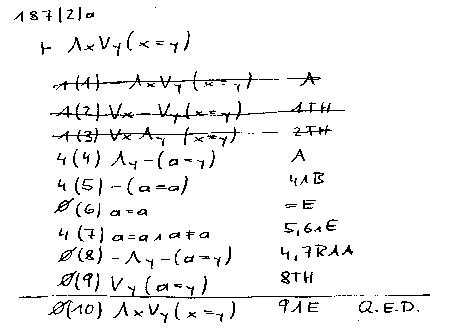 187|2|a
⊢ ΛxVy(x=y)
1(1) –ΛxVy(x=y) A
1(2) Vx–Vy(x=y) 1TH
1(3) VxΛy–(x=y) 2TH
4(4) Λy–(a=y) A
4(5) –(a=a) 4ΛB
∅(6) a=a =E
4(7) a=a∧a≠a 5,6∧E
∅(8) –Λy–(a=y) 4,7RAA
∅(9) Vy(a=y) 8TH
∅(10) ΛxVy(x=y) 9ΛE Q.E.D.